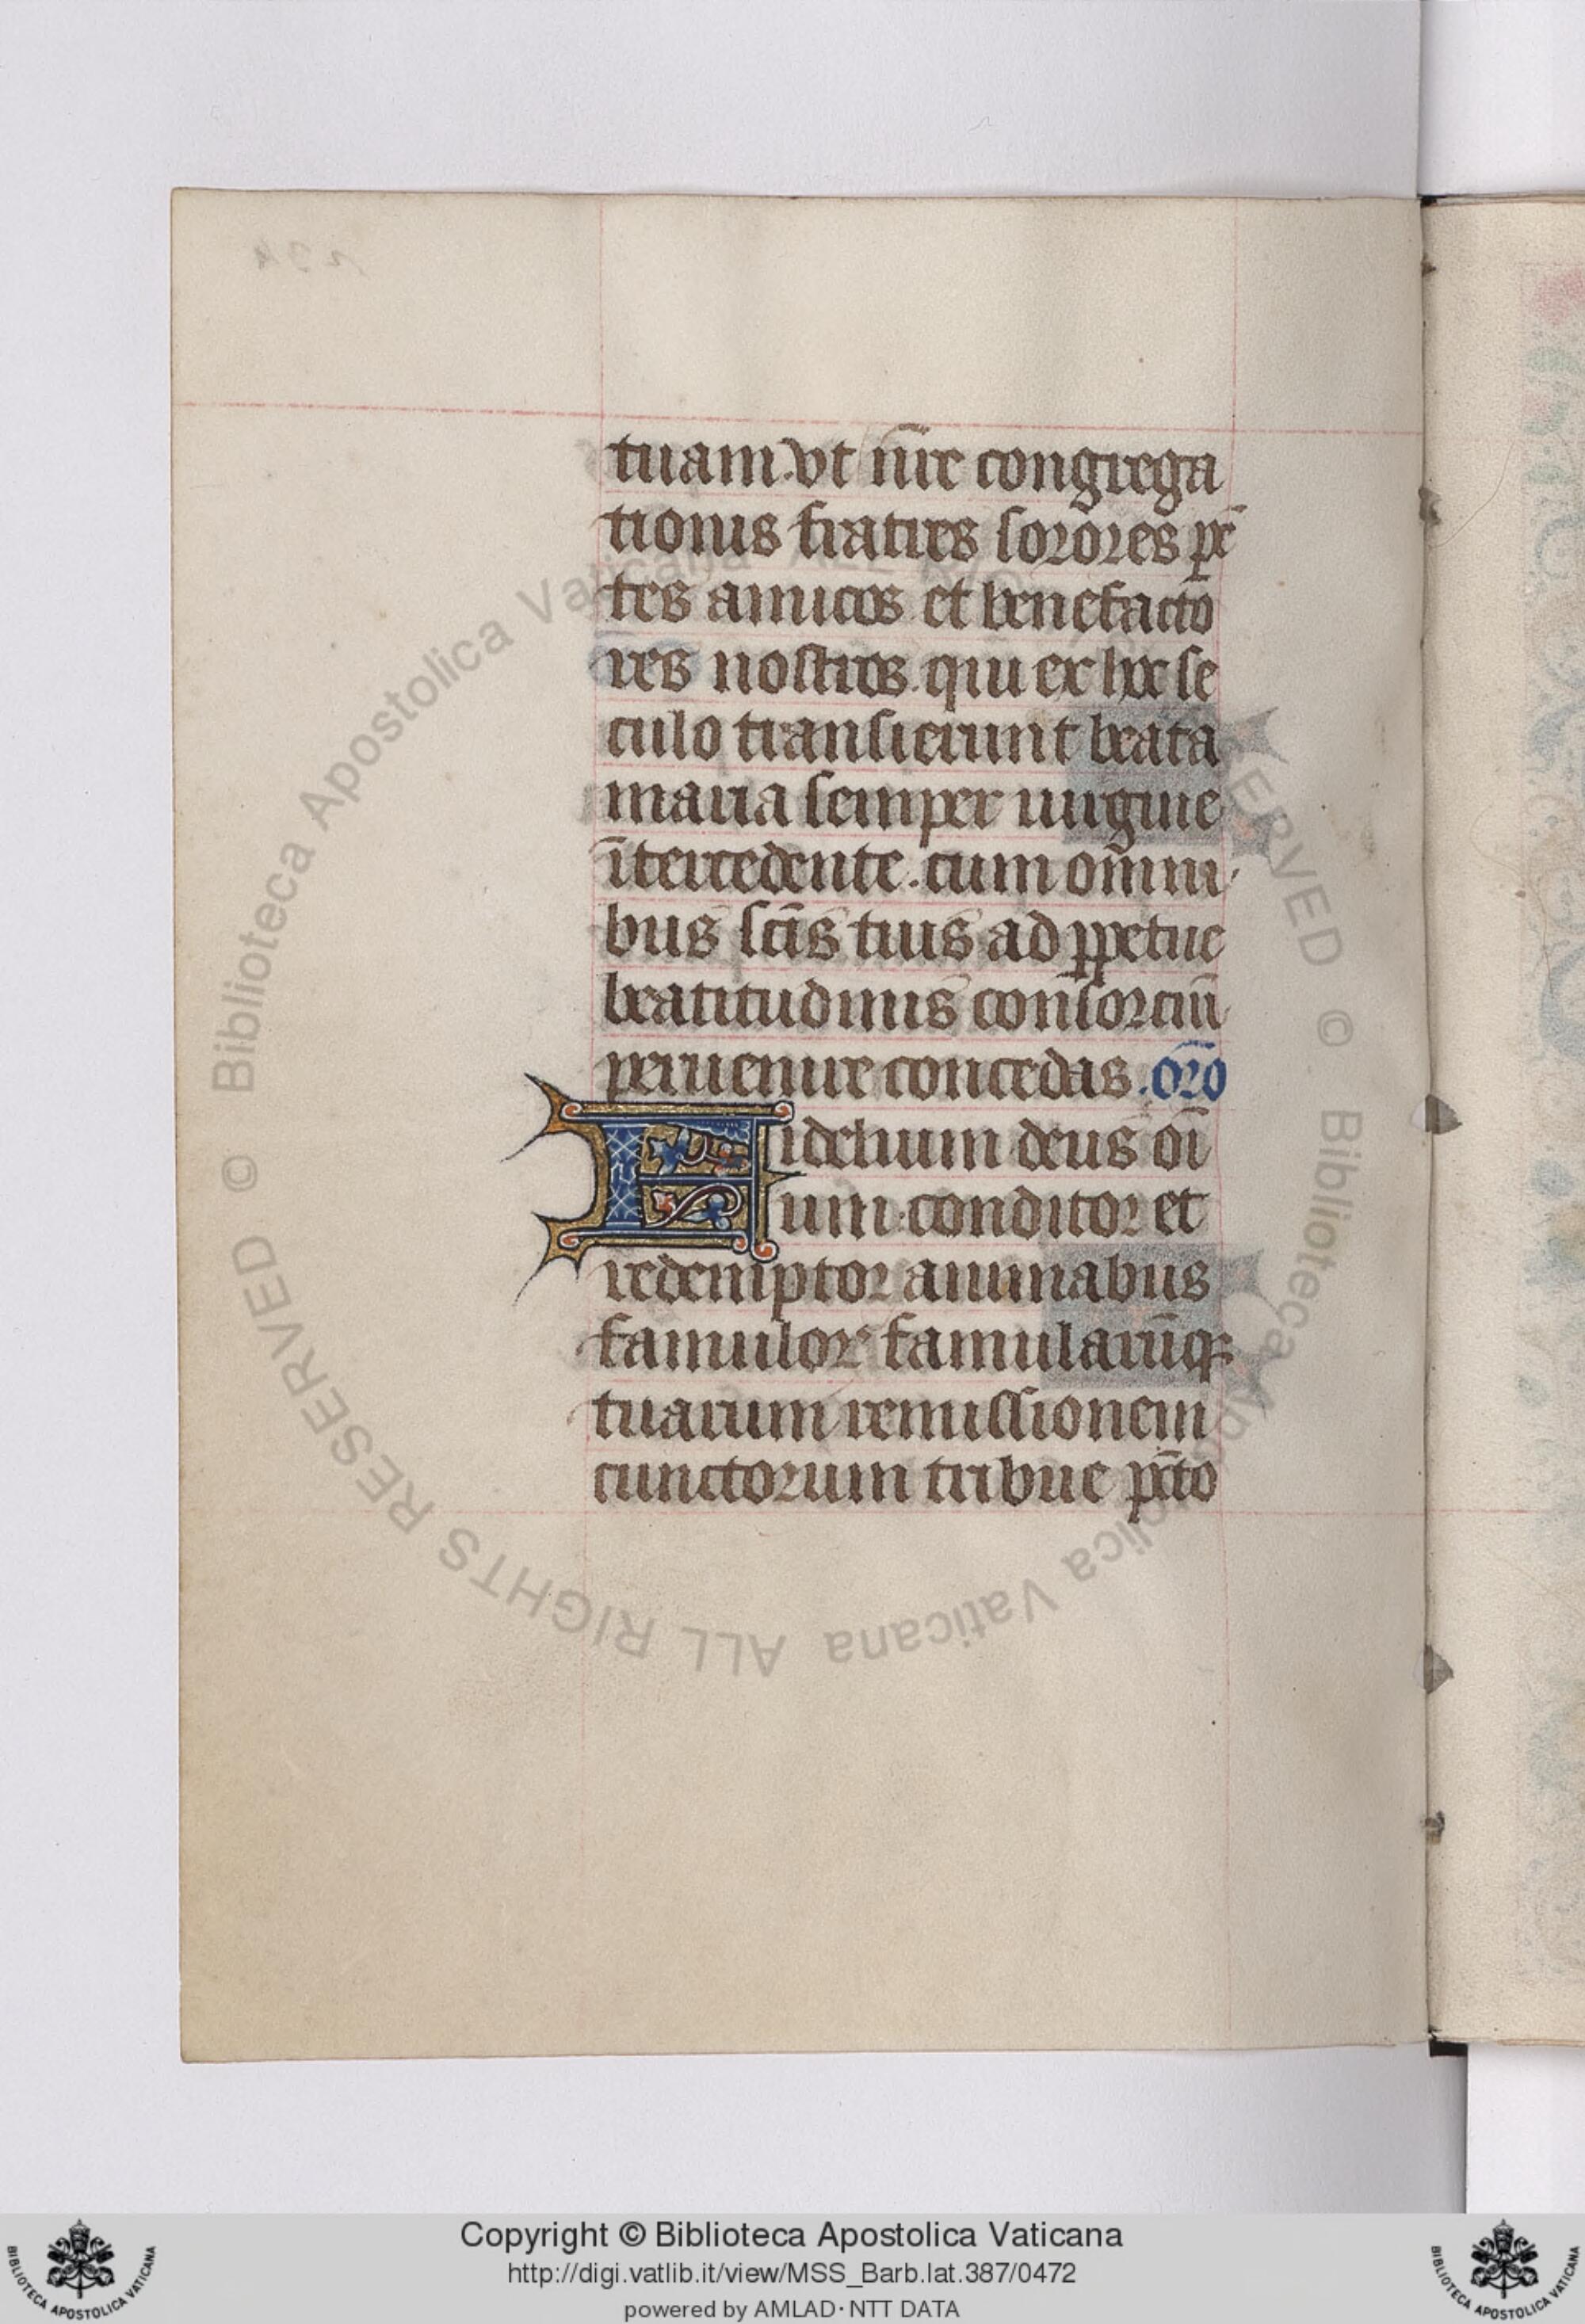 tuam. vt nr̄e congrega
tionis fratres sorores pē
tes amicos et benefacto
res nostros. qui ex hoc se
culo transierunt beata
maria semper uirgine
ītercedente. cum om̄ni
bus scīs tuis ad ꝑpetue
beatitudinis consorciū
peruenire concedas. oŕo
Fidelium deus oī
um conditor et
redemptor animabus
famulorꝝ famularūq;
tuarum remissionem
cunctorum tribue pēto
© Biblioteca Apostolica Vaticana ALL RIGHTS RESERVED © Biblioteca Apostolica Vaticana ALL RIGHTS RESERVED
Copyright © Biblioteca Apostolica Vaticana
http://digi.vatlib.it/view/MSS_Barb.lat.387/0472
powered by AMLAD·NTT DATA
BIBLIOTECA APOSTOLICA VATICANA
BIBLIOTECA APOSTOLICA VATICANA